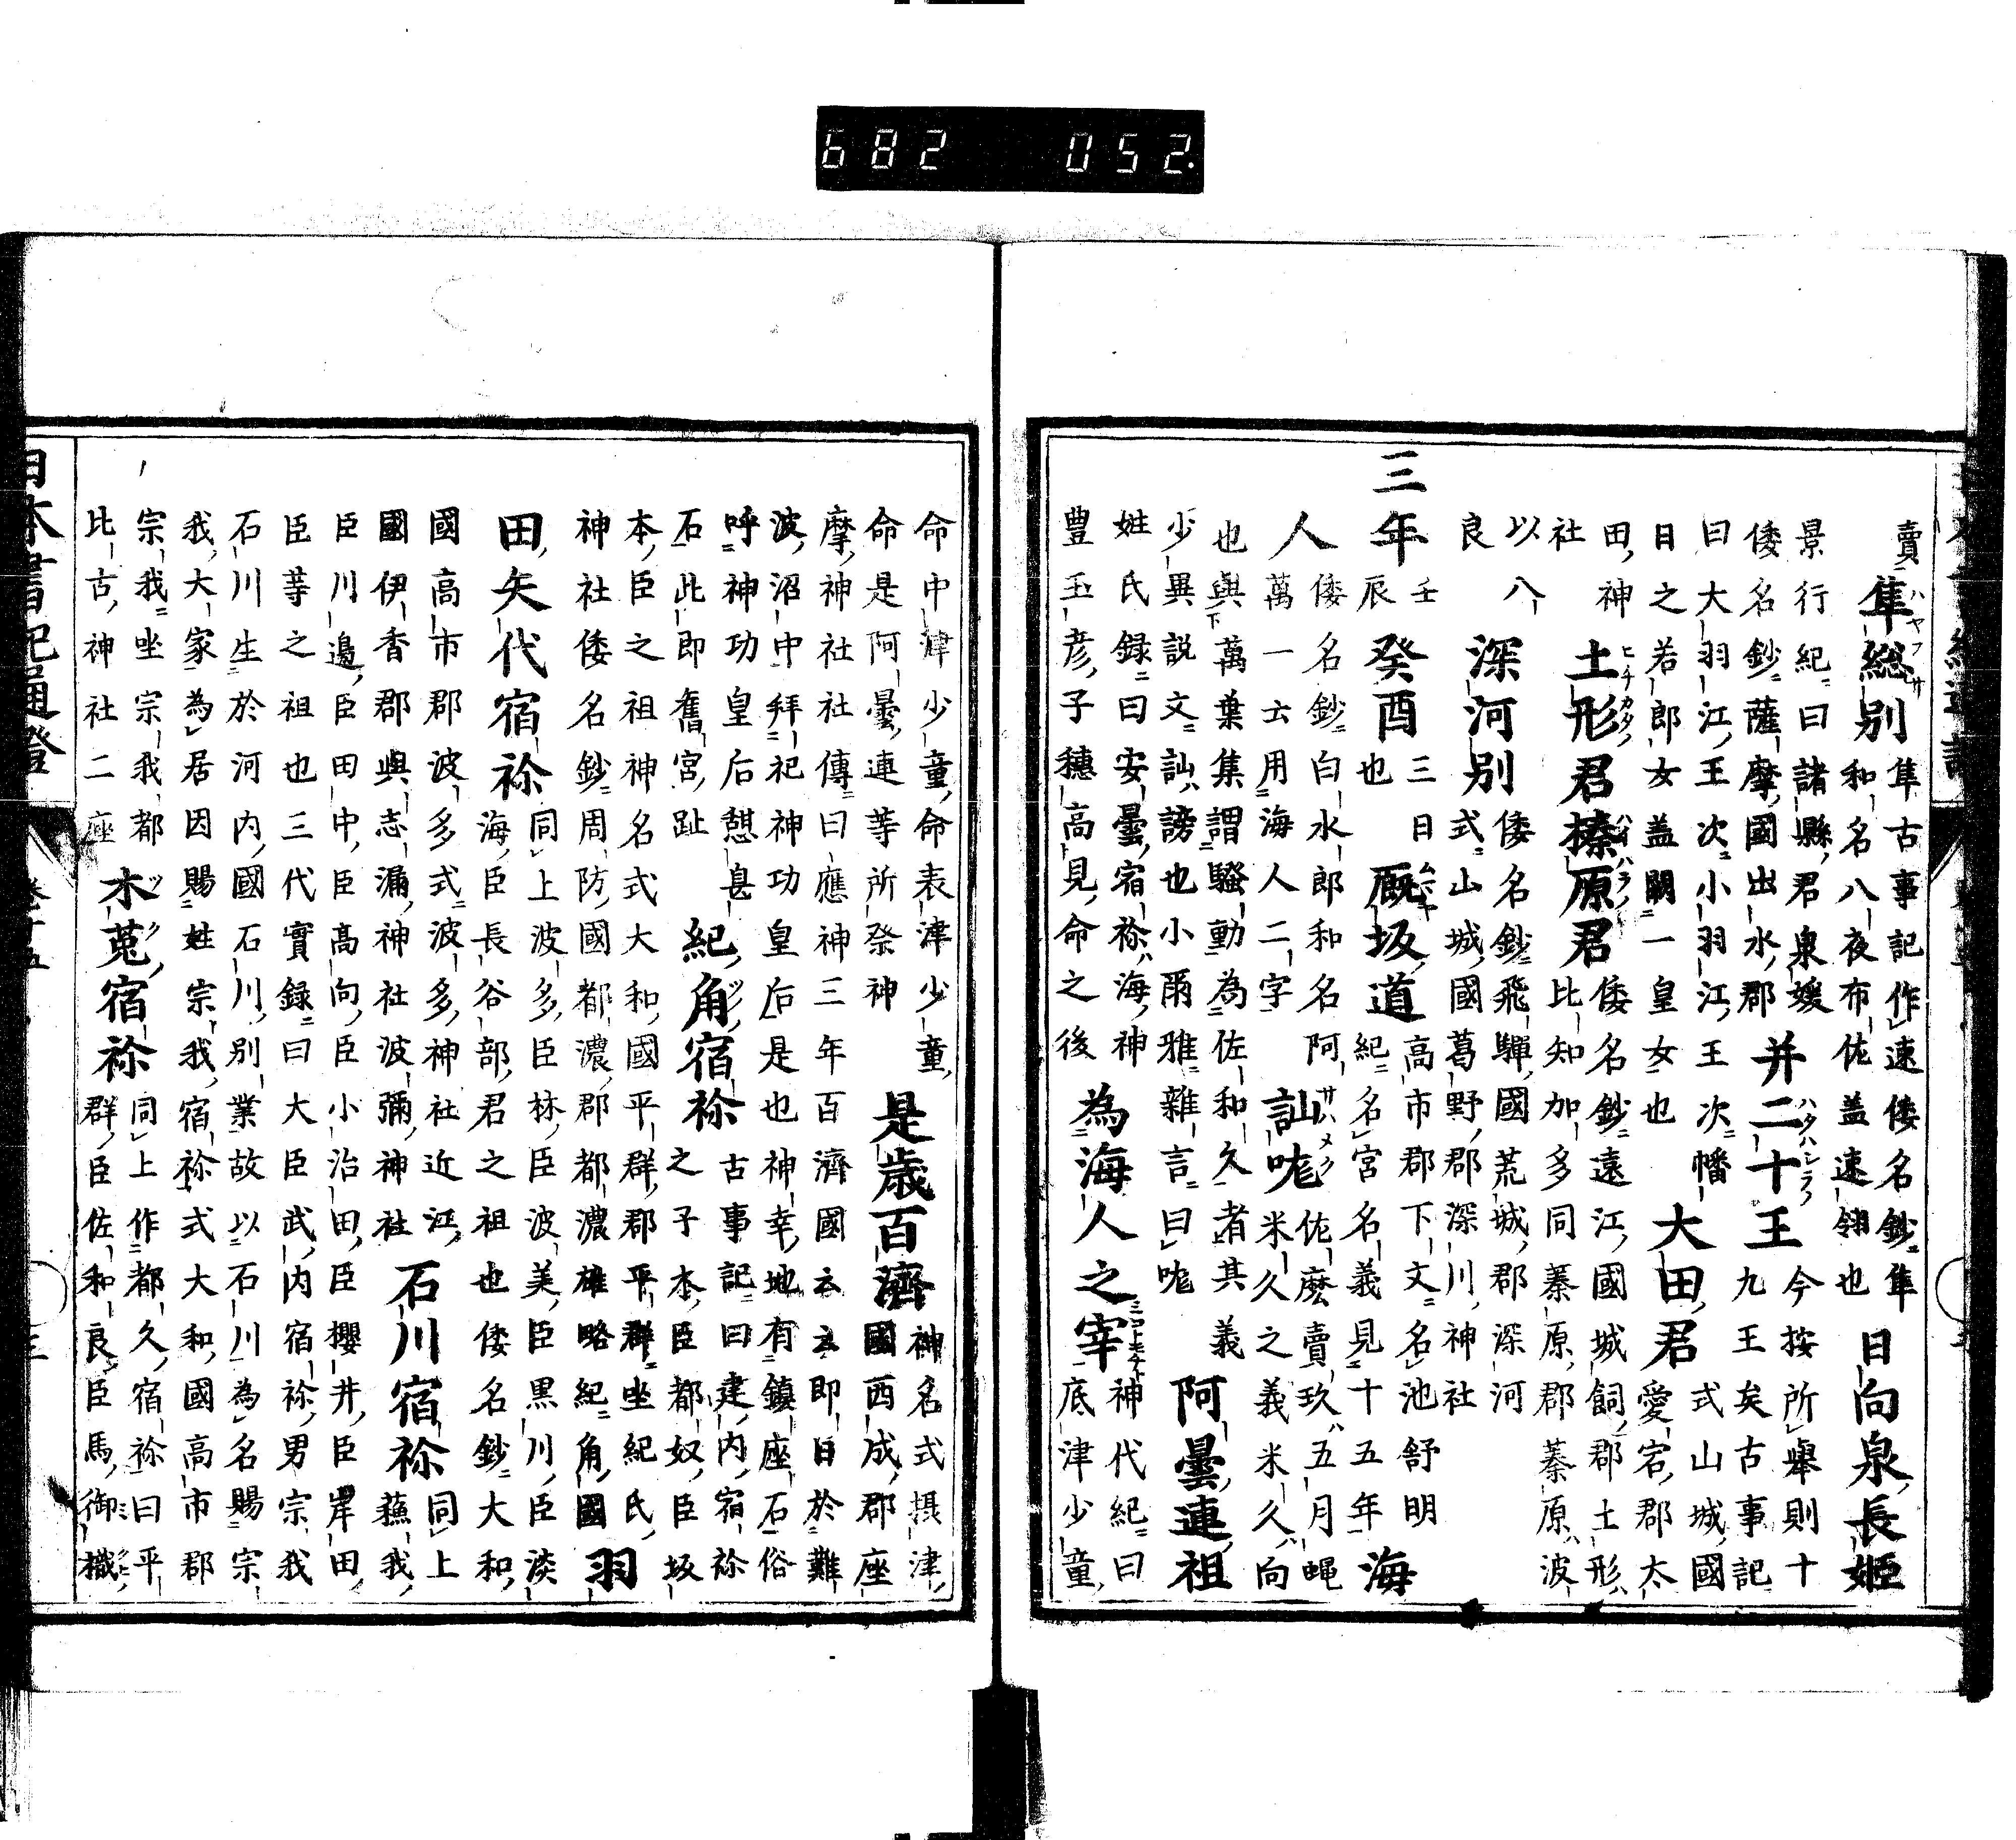 682 052
賣 隼総別 隼古事記作速倭名鈔隼
和名八夜布佐盖速翎也 日向泉長姬
景行紀曰諸縣君泉媛
倭名鈔薩摩國出水郡 并二十王 今按所舉則十
九王矣古事記
曰大羽江王次小羽江王次幡
日之若郎女盖闕一皇女也 大田君 式山城國
愛宕郡太
田神
社 土形君榛原君 倭名鈔遠江國城飼郡土形
比知加多同蓁原郡蓁原波
以八
良 深河别 倭名鈔飛驒國荒城郡深河
式山城國葛野郡深川神社
三年 壬
辰 癸酉 三日
也 厩坂道 高市郡下文名池舒明
紀名宮名義見十五年 海
人 倭名鈔白水郎和名阿
萬一云用海人二字 訕哤 佐麽賣玖五月蝿
米久之義米久向
也與萬葉集謂騷動為佐和久者其義
少異説文訕謗也小爾雅雜言曰哤 阿曇連祖
姓氏録曰安曇宿祢海神
豊玉彦子穗高見命之後 為海人之宰 神代紀曰
底津少童
命中津少童命表津少童
命是阿曇連等所祭神 是歳百濟國 神名式摂津
西成郡座
摩神社社傳曰應神三年百濟國云云即日於難
波沼中拜祀神功皇后是也神幸地有鎮座石俗
呼神功皇后憇息
石此即舊宮趾 紀角宿祢 古事記曰建内宿祢
之子木臣都奴臣坂
本臣之祖神名式大和國平群郡平群坐紀氏
神社倭名鈔周防國都濃郡都濃雄略紀角國 羽
田矢代宿祢 同上波多臣林臣波美臣黒川臣淡
海臣長谷部君之祖也倭名鈔大和
國高市郡波多式波多神社近江
國伊香郡與志漏神社波彌神社 石川宿祢 同上
蘓我
臣川邊臣田中臣髙向臣小治田臣櫻井臣岸田
臣䓁之祖也三代實録曰大臣武内宿祢男宗我
石川生於河内國石川别業故以石川為名賜宗
我大家為居因賜姓宗我宿祢式大和國高市郡
宗我坐宗我都
比古神社二座 木菟宿祢 同上作都久宿祢曰平
群臣佐和良臣馬御樴
日本書紀通證